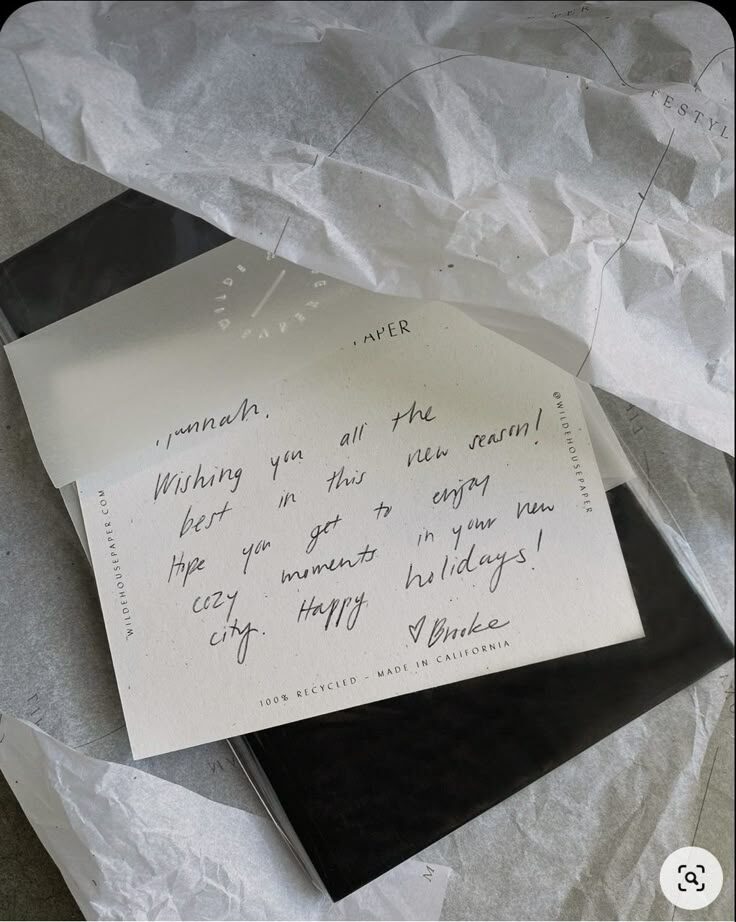 WILDE
PAPER
PAPER
Hannah,
Wishing you all the
best in this new season!
Hope you get to enjoy
cozy moments in your new
city. Happy holidays!
♡ Brooke
100% RECYCLED - MADE IN CALIFORNIA
WILDEHOUSEPAPER.COM
@WILDEHOUSEPAPER